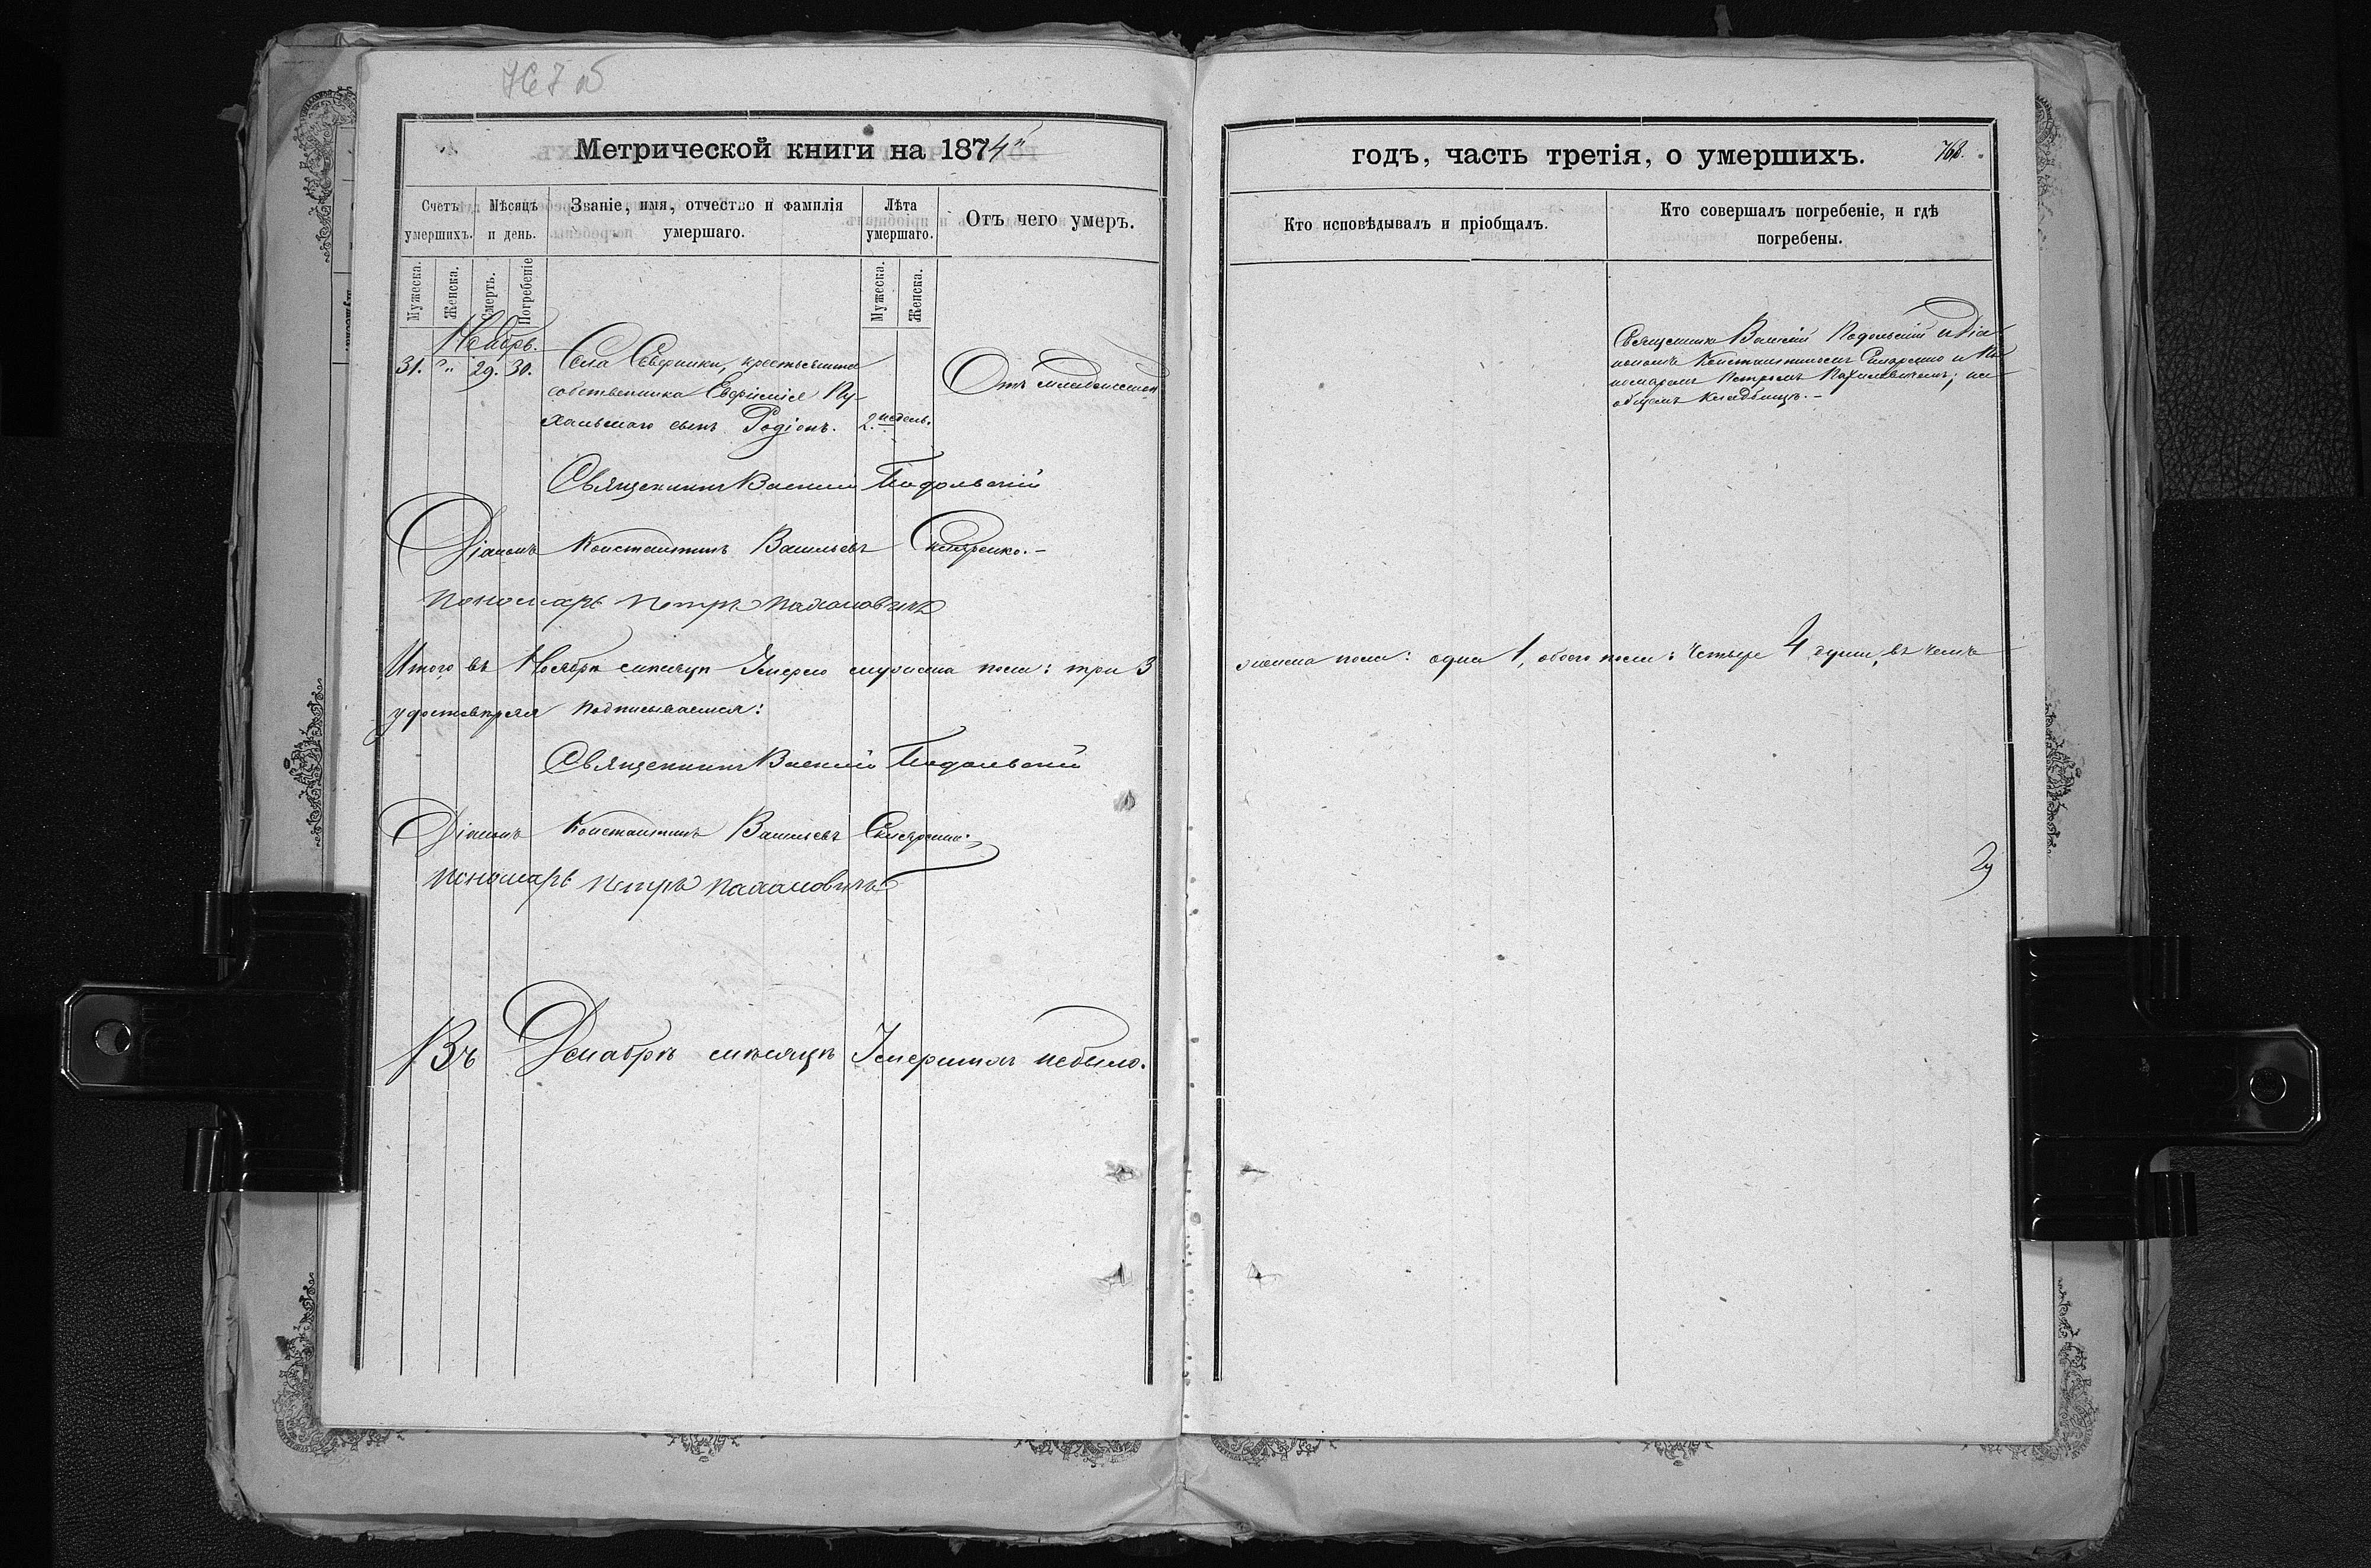 767 об
Метрической книги на 1874й
Счетъ умершихъ.
Мѣсяцъ и день.
Званіе, имя, отчество и фамилія умершаго.
Лѣта умершаго.
Отъ чего умеръ.
Мужеска.
Женска.
Смерть.
Погребеніе
Мужеска.
Женска.
Ноябрь.
31. " 29. 30. Села крестьянина
собственника Евфимія Пу-
хальскаго сынъ Родіонъ. 2. недель.
Отъ младенческой
Священникъ Василій Подольскій
Діаконъ Константинъ Васильевъ
Пономарь Петръ Пахаловичъ
Итого въ Ноябрѣ мѣсяцѣ Умерло мужеска пола: три 3
удостовѣряя подписываемся:
Священникъ Василій Подольскій
Діаконъ Константинъ Васильевъ
Пономарь Петръ Пахаловичъ
Въ Декабрѣ мѣсяцѣ Умершихъ небыло.
годъ, часть третія, о умершихъ.
768.
Кто исповѣдывалъ и пріобщалъ.
Кто совершалъ погребеніе, и гдѣ погребены.
Священникъ Василій Подольскій съ Діа-
кономъ Константиномъ и По-
номаремъ Петромъ Пахаловичемъ; на
общемъ кладбищѣ.-
женска пола: одна 1, обоего пола: четыре 4 души, въ чемъ